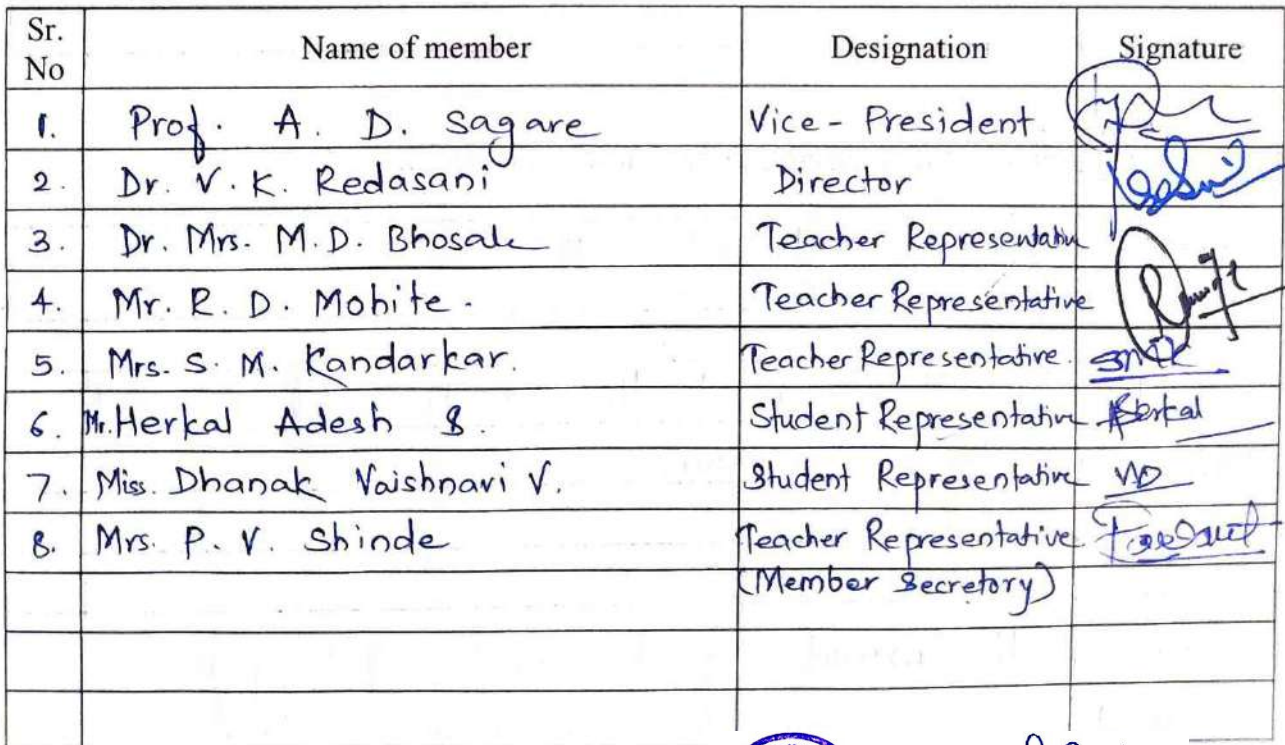 Sr. No Name of member Designation Signature
1. Prof. A. D. Sagare Vice - President
2. Dr. V. K. Redasani Director
3. Dr. Mrs. M. D. Bhosale Teacher Representative
4. Mr. R. D. Mohite. Teacher Representative
5. Mrs. S. M. Kandarkar. Teacher Representative. SMK
6. Mr. Herkal Adesh S. Student Representative Herkal
7. Miss. Dhanak Vaishnavi V. Student Representative VD
8. Mrs. P. V. Shinde Teacher Representative
(Member Secretory)